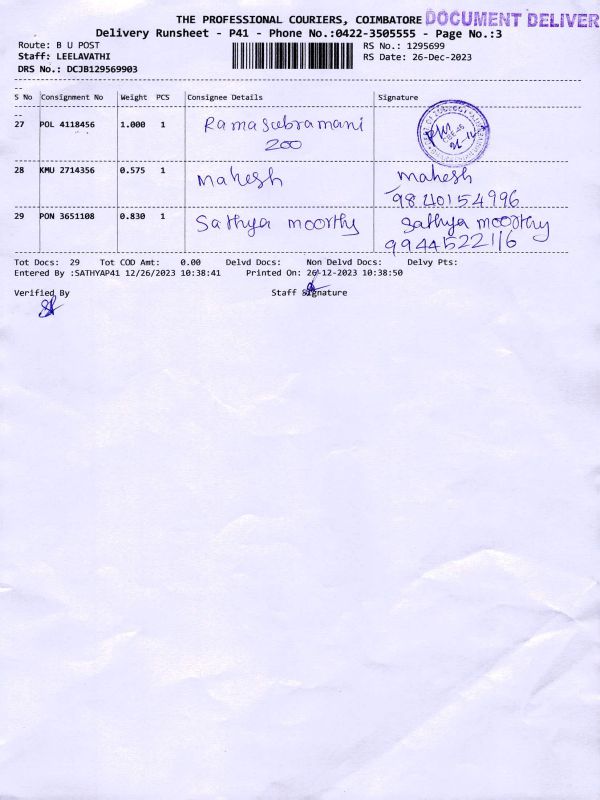 THE PROFESSIONAL COURIERS, COIMBATORE DOCUMENT DELIVER
Delivery Runsheet - P41 - Phone No.:0422-3505555 - Page No.:3
Route: B U POST RS No.: 1295699
Staff: LEELAVATHI RS Date: 26-Dec-2023
DRS No.: DCJB129569903
S No Consignment No Weight PCS Consignee Details Signature
27 POL 4118456 1.000 1 Ramasubramani
200
28 KMU 2714356 0.575 1 Mahesh mahesh
9840154996
29 PON 3651108 0.830 1 Sathya moorthy Sathya moorthy
9944522116
Tot Docs: 29 Tot COD Amt: 0.00 Delvd Docs: Non Delvd Docs: Delvy Pts:
Entered By :SATHYAP41 12/26/2023 10:38:41 Printed On: 26-12-2023 10:38:50
Verified By Staff Signature